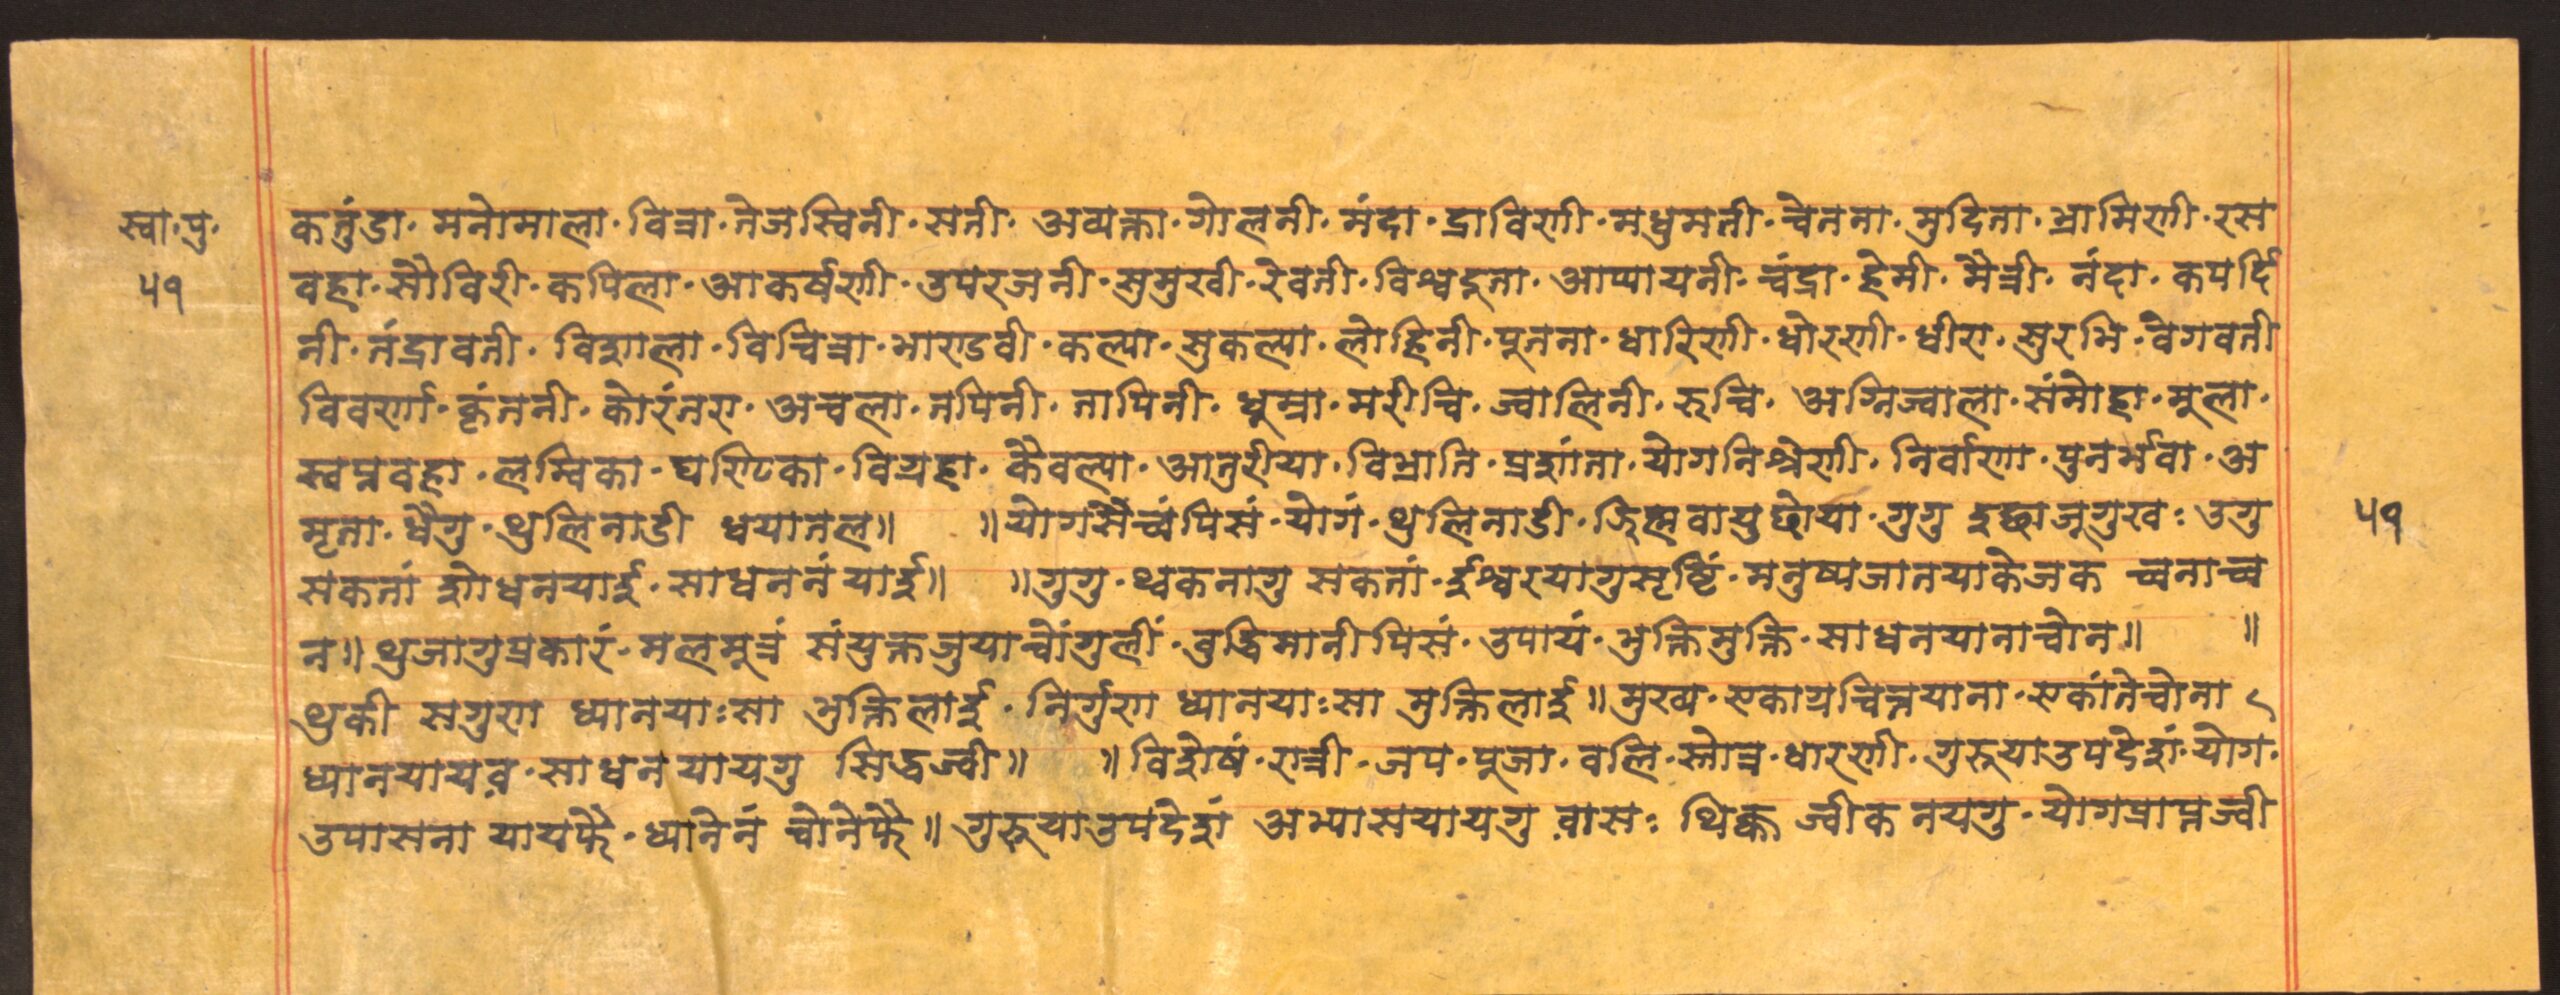 स्वा॰पु॰
५१
कतुंडा॰ मनोमाला॰ वित्रा॰ तेजस्विनी॰ सती॰ अव्यक्ता॰ गोलनी॰ मंदा॰ द्राविणी॰ मधुमती॰ चेतना॰ मुदिता॰ भ्रामिणी॰ रस
वहा॰ सौविरी॰ कपिला॰ आकर्षणी॰ उपरजनी॰ सुमुखी॰ रेवती॰ विश्वदूता॰ आप्यायनी॰ चंद्रा॰ हेमी॰ मैत्री॰ नंदा॰ कपर्दि
नी॰ तंद्रावती॰ विशाला॰ विचित्रा॰ भाण्डवी॰ कल्पा॰ सुकल्पा॰ लोहिनी॰ पूतना॰ धारिणी॰ धोरणी॰ धीरा॰ सुरभि॰ वेगवती
विवर्णा॰ कृंतनी॰ कोरंतरा॰ अचला॰ तपिनी॰ तापिनी॰ धूम्रा॰ मरीचि॰ ज्वालिनी॰ रुचि॰ अग्निज्वाला॰ संमोहा॰ मूला॰
स्वप्नवहा॰ लम्विका॰ घण्टिका॰ विग्रहा॰ कैवल्या॰ आतुरीया॰ विभ्राति॰ प्रशांता॰ योगनिश्रेणी॰ निर्वाणा॰ पुनर्भवा॰ अ
मृता॰ धैगु॰ थुलिनाडी ध्वयातल॥ ॥योगसेच्वंपिसं॰ योगं॰ थुलिनाडी॰ जिह्मवायुछोया॰ गुगु इछाजूगुखः उगु
सकतां शोधनयाई॰ साधननं याई॥ ॥गुगु॰ थ्वकनागु सकतां॰ ईश्वरयागुसृष्टिं॰ मनुष्यजातयाकेजक च्वनाच्व
न॥ थुजागुप्रकारं॰ मलमूत्रं संयुक्तजुयाचोंगुलीं॰ वुद्धिमानीपिसं॰ उपायं॰ भुक्तिमुक्ति॰ साधनयानाचोन॥ ॥
थुकी सगुण ध्यानयाःसा भुक्तिलाई॰ निर्गुण ध्यानयाःसा मुक्तिलाई॥ मुख्य॰ एकाग्रचित्तयाना॰ एकांतेचोना
ध्यानयायव़॰ साधनयायगु सिद्धज्वी॥ ॥विशेषं॰ रात्री॰ जप॰ पूजा॰ वलि॰ स्तोत्र॰ धारणी॰ गुरुयाउपदेशं॰ योग॰
उपासना यायफै॰ ध्यानेनं चोनेफै॥ गुरुयाउपदेशं अभ्यासयायगु व़ासः थिक्क ज्वीक नयगु॰ योगप्राप्तज्वी
५१